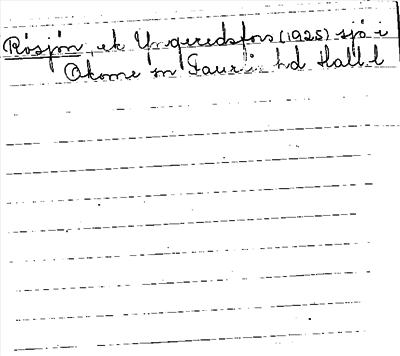 Rösjön, ek Yngeredsfors (1925) sjö i
Okome sn Faur. hd Hall. l